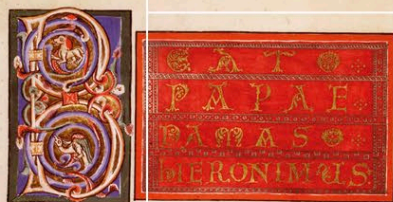 BEATO
PAPAE
DAMASO
HIERONIMUS